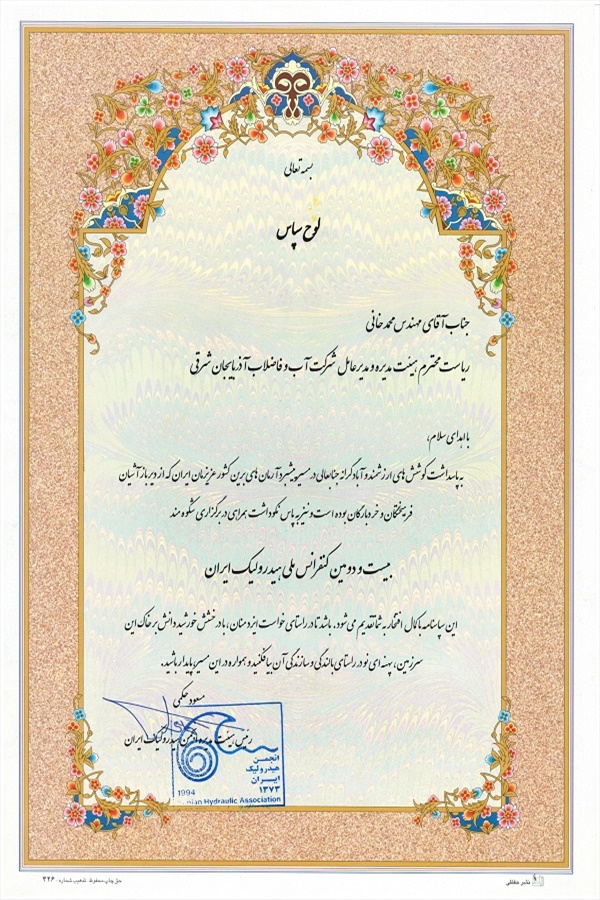 بسمه تعالی
لوح سپاس
جناب آقای مهندس محمدخانی
ریاست محترم هیئت مدیره و مدیرعامل شرکت آب و فاضلاب آذربایجان شرقی
با اهدای سلام،
به پاسداشت کوشش های ارزشمند و آبادگرانه جنابعالی در مسیر پیشبرد آرمان های برین کشور عزیزمان ایران که از دیرباز آشیان
فرهیختگان و خردبارکان بوده است و نیز به پاس نکوداشت همراهی در برگزاری شکوه مند
بیست و دومین کنفرانس ملی هیدرولیک ایران
این سپاسنامه با کمال افتخار به شما تقدیم می شود. باشد تا در راستای خواست ایزد منان، با درخشش خورشید دانش بر خاک این
سرزمین، پهنه ای نو در راستای بالندگی و سازندگی آن بیافکنید و همواره در این مسیر پایدار باشید.
مسعود حکمی
رئیس هیئت مدیره انجمن هیدرولیک ایران
انجمن
هیدرولیک
ایران
1994 ۱۳۷۳
Iranian Hydraulic Association
نشر حقانی
حق چاپ محفوظ تذهیب شماره: ۳۲۶